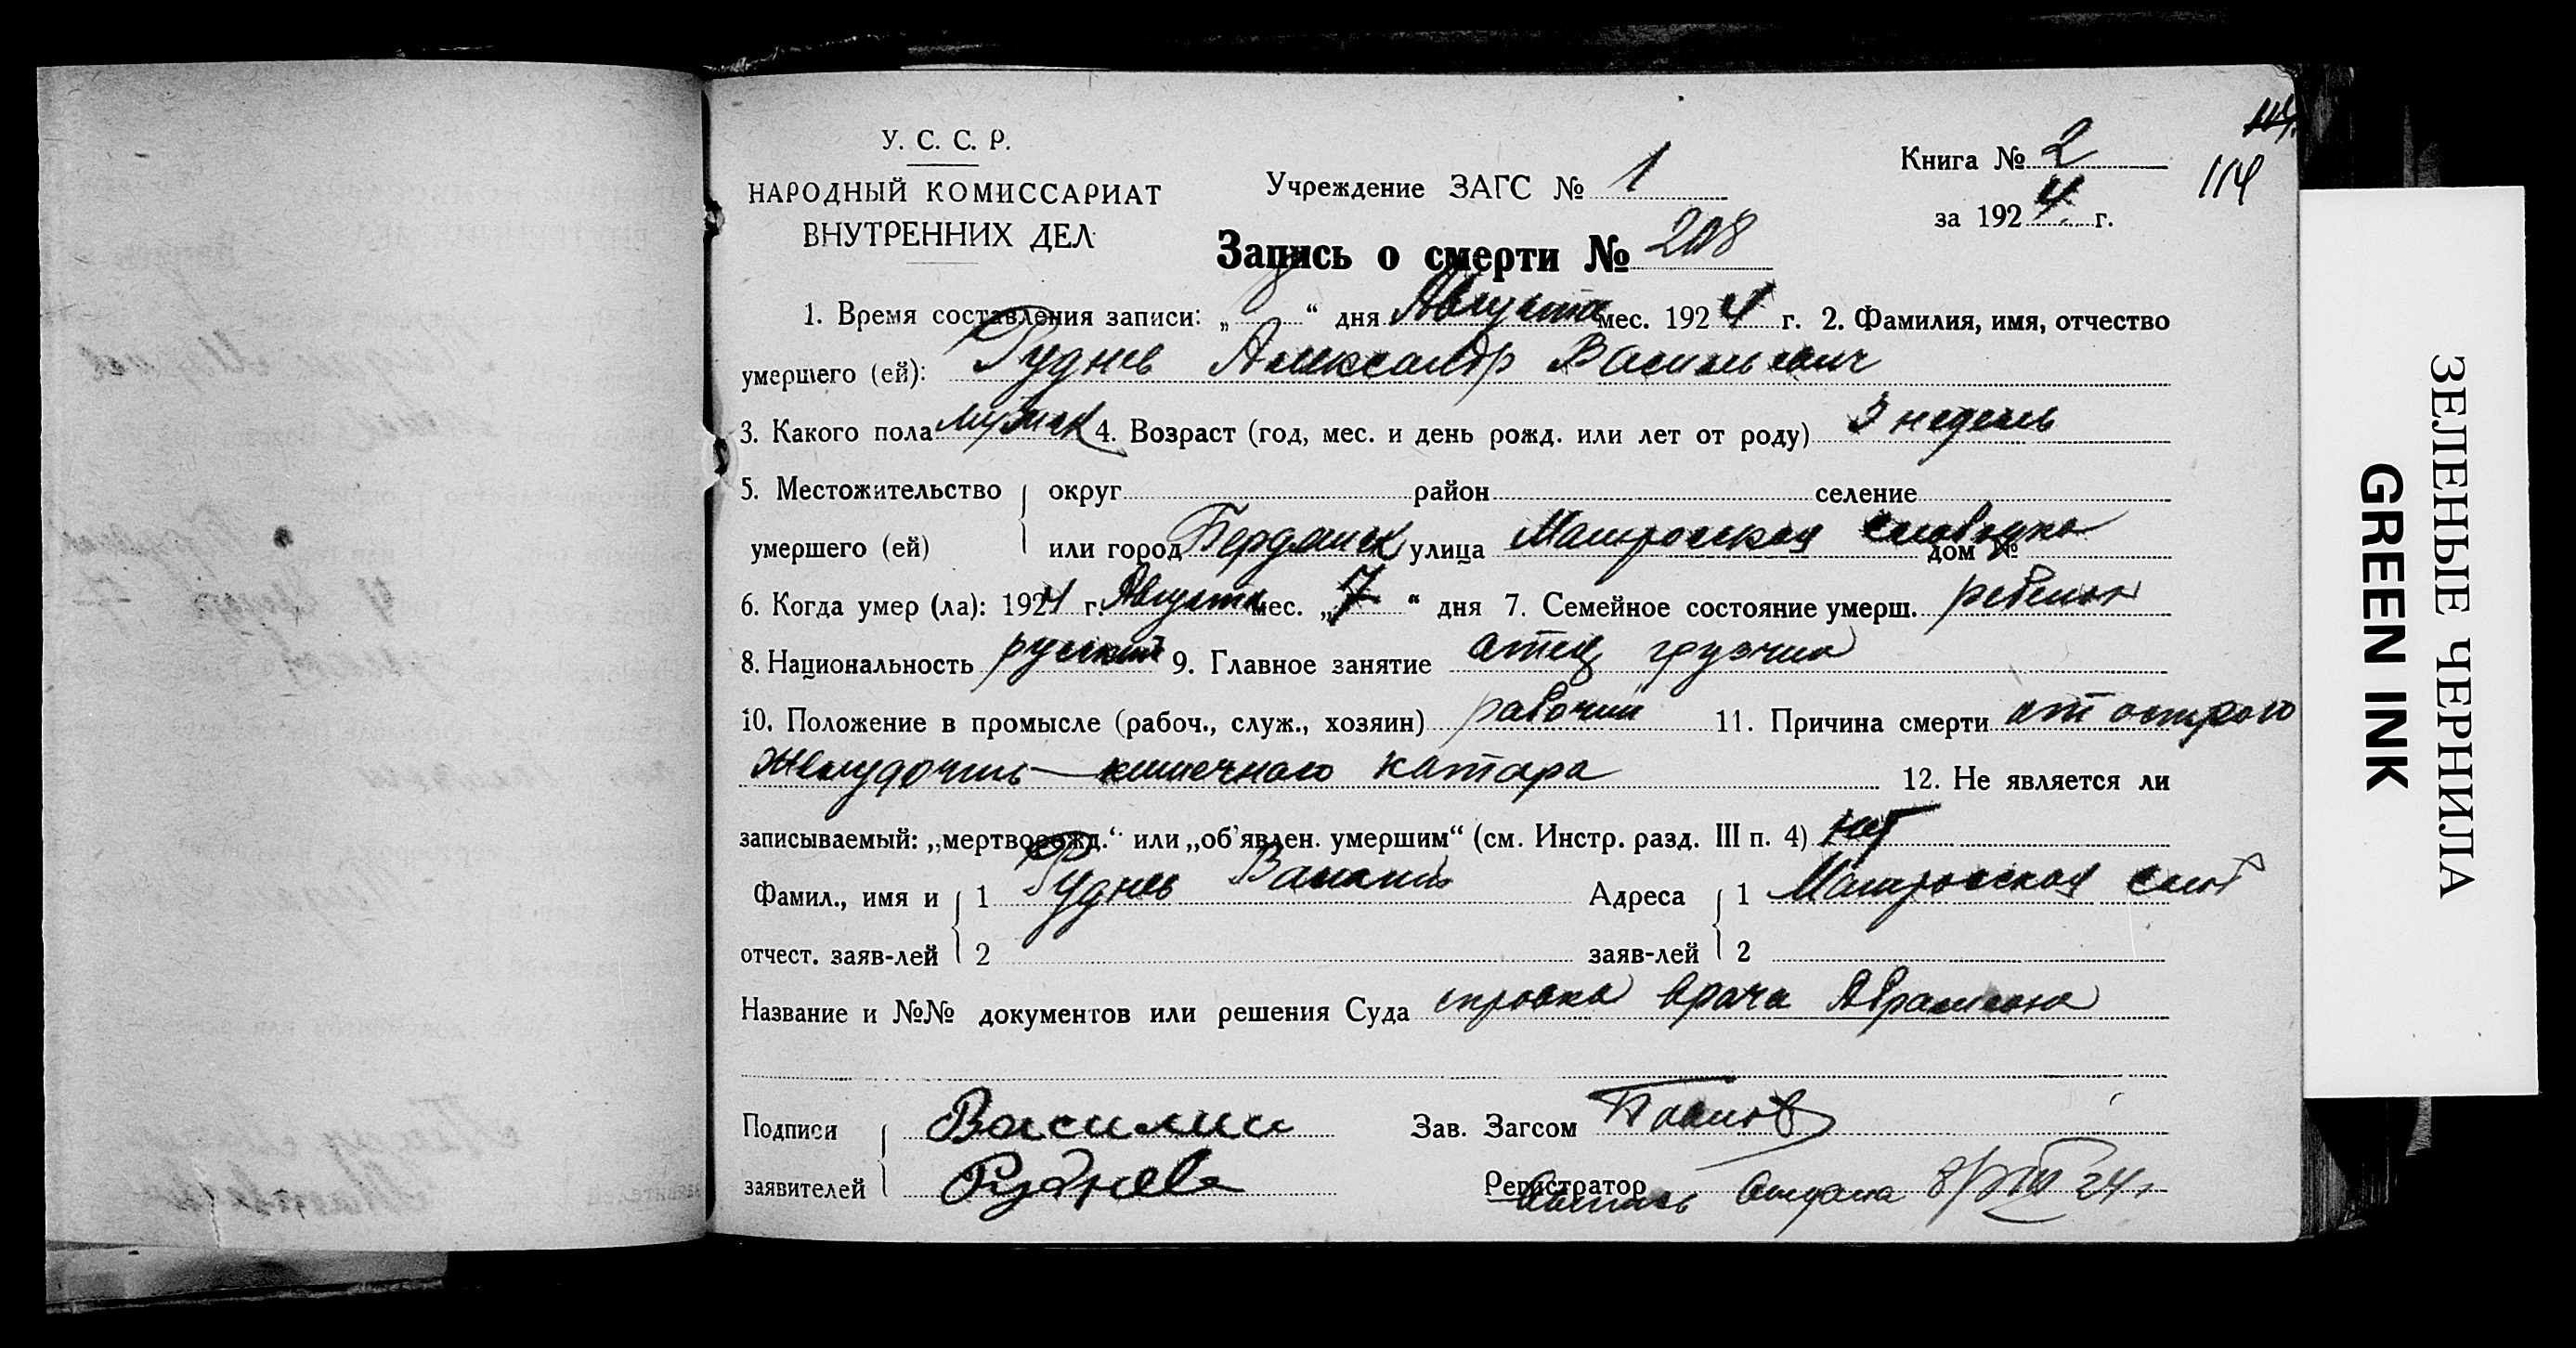 У. С. С. Р.
НАРОДНЫЙ КОМИССАРИАТ
ВНУТРЕННИХ ДЕЛ
Учреждение ЗАГС № 1
Книга № 2
за 1924 г.
114
Запись о смерти № 208
1. Время составления записи: „8“ дня Августа мес. 1924 г. 2. Фамилия, имя, отчество
умершего (ей): Руднев Александр Васильевич
3. Какого пола мужск 4. Возраст (год, мес. и день рожд. или лет от роду) 3 недель
5. Местожительство округ район селение
умершего (ей) или город Бердянск улица Матросская слободка дом №
6. Когда умер (ла): 1924 г. Августа мес. „7“ дня 7. Семейное состояние умерш. ребенок
8. Национальность русский 9. Главное занятие отец грузчик
10. Положение в промысле (рабоч., служ., хозяин) рабочий 11. Причина смерти от острого
желудочно-кишечного катара 12. Не является ли
записываемый: „мертворожд.“ или „об'явлен. умершим“ (см. Инстр. разд. III п. 4) нет
Фамил., имя и 1 Руднев Василий Адреса 1 Матросская слоб
отчест. заяв-лей 2 заяв-лей 2
Название и №№ документов или решения Суда справка врача
Подписи Василий Зав. Загсом
заявителей Руднев Регистратор 8/VIII 24 г
ЗЕЛЕНЫЕ ЧЕРНИЛА
GREEN INK